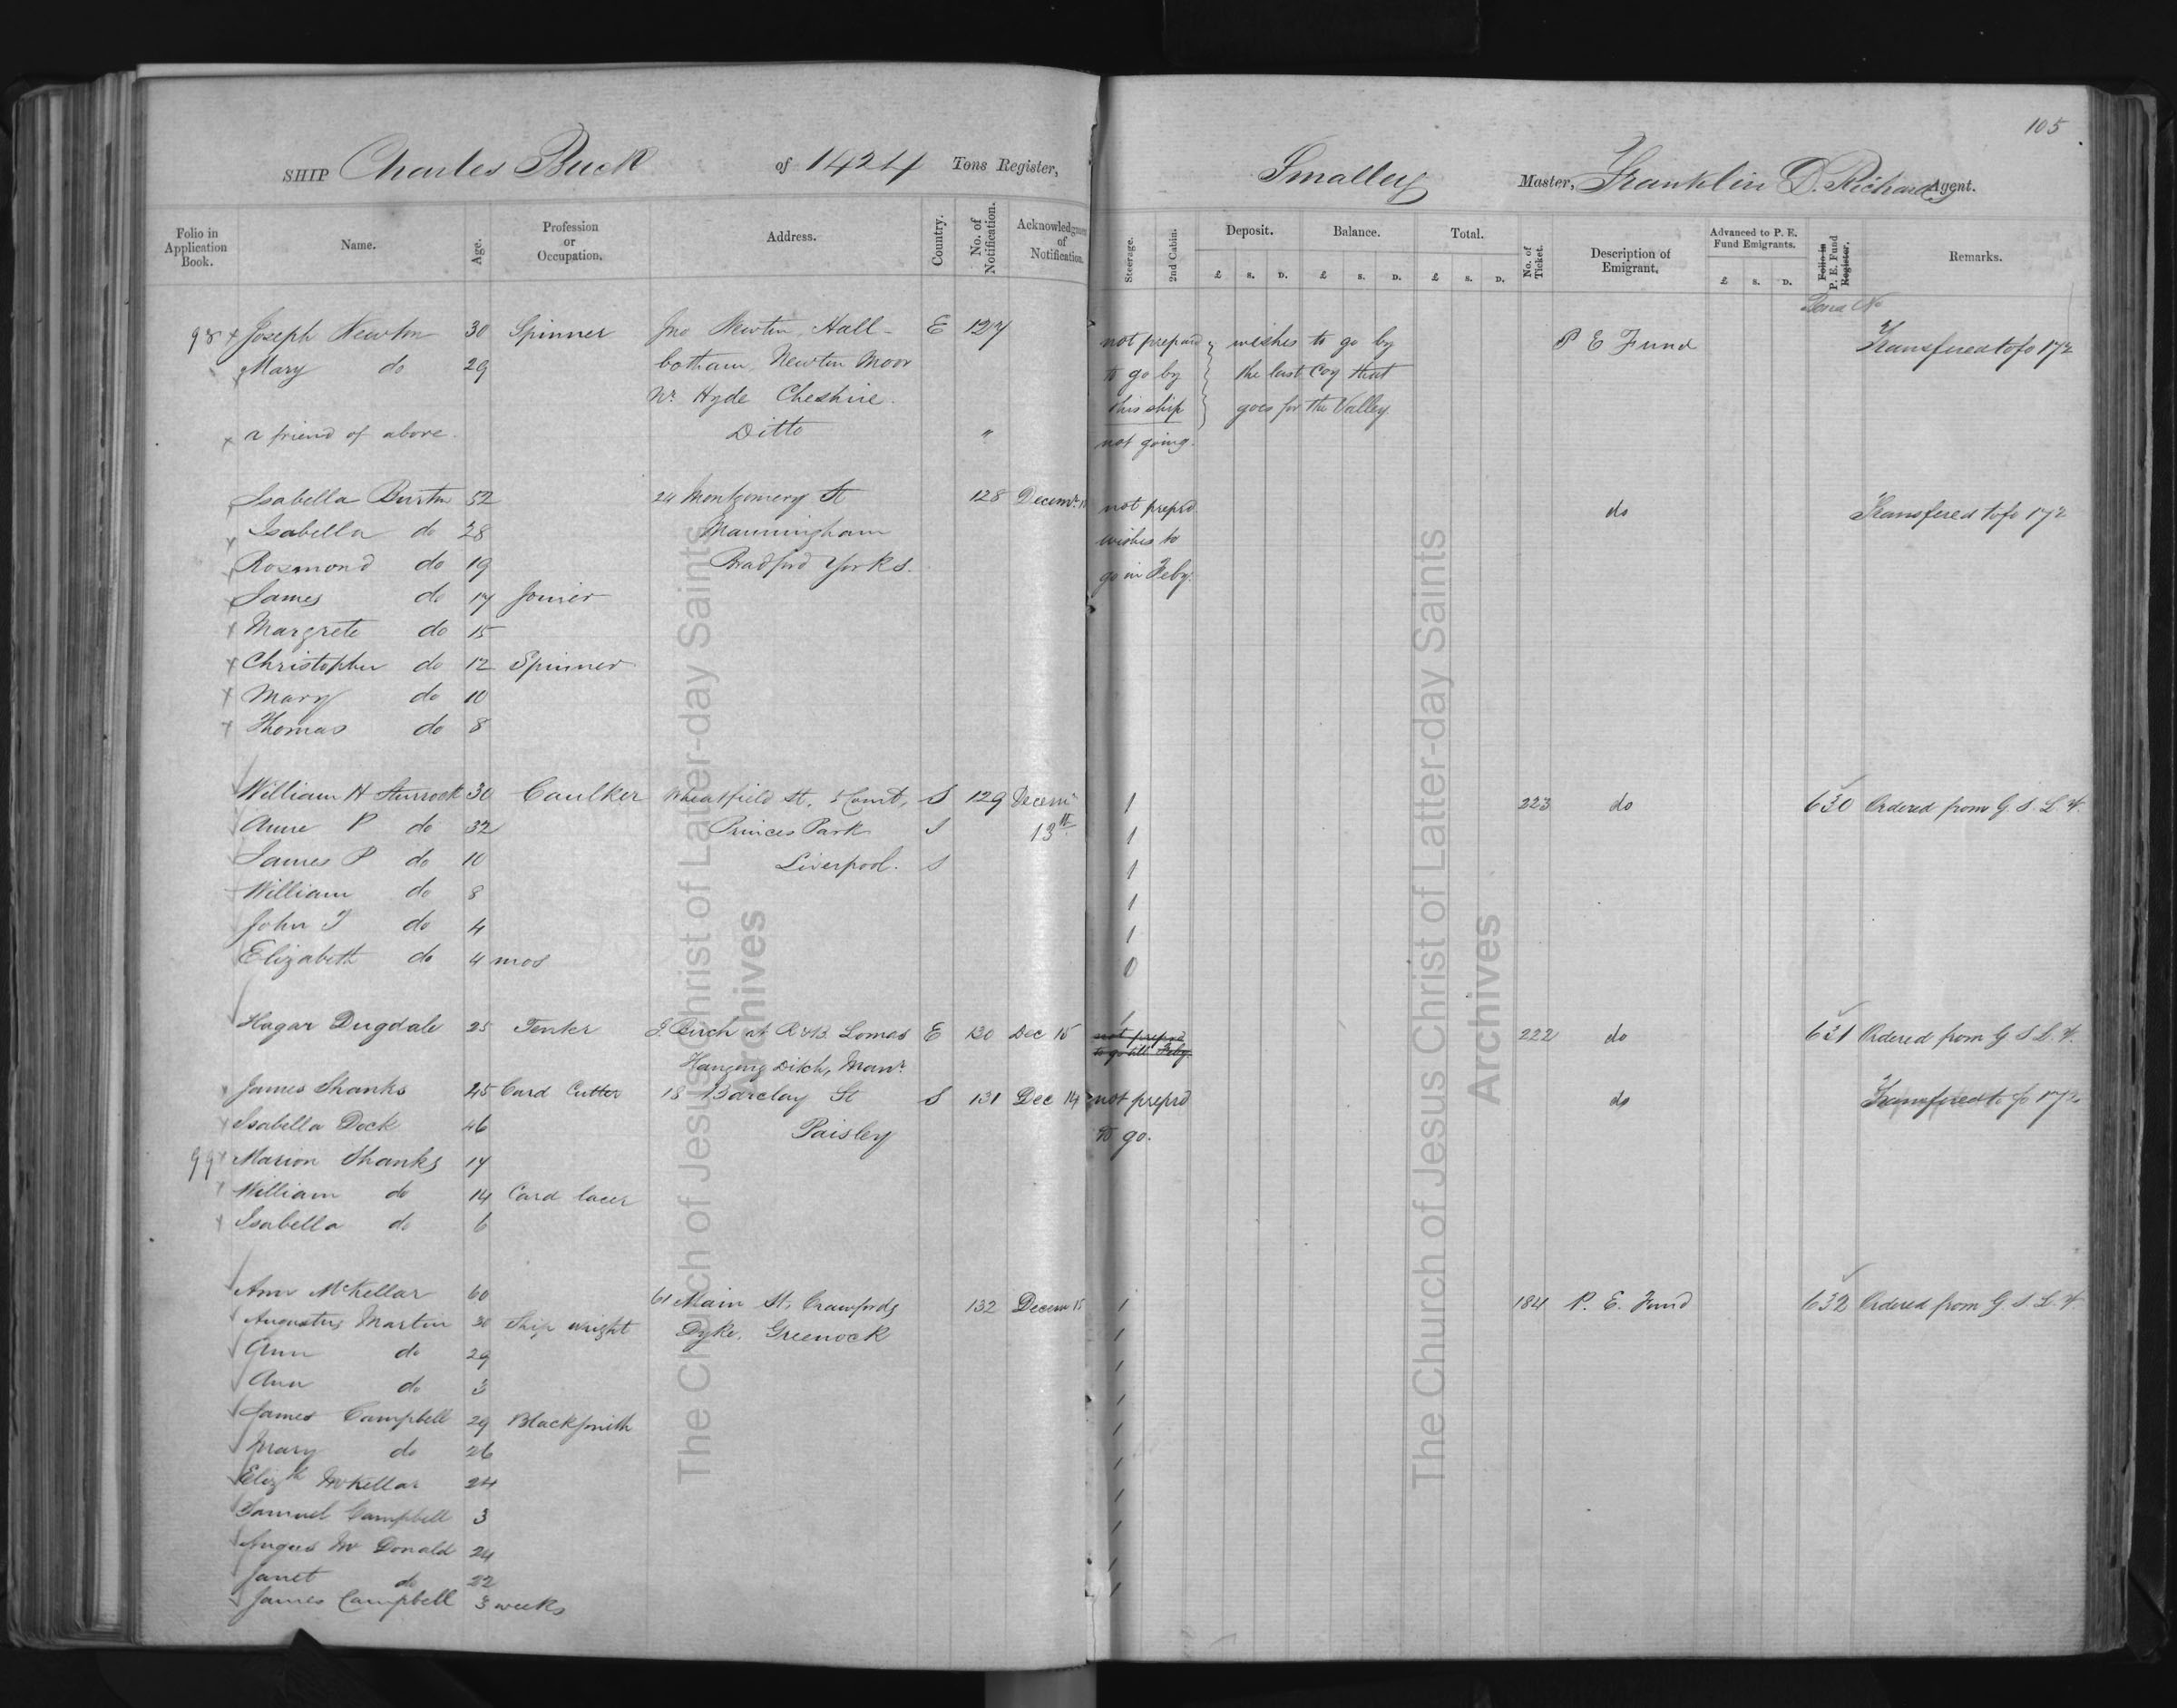 105
SHIP Charles Buck of 1424 Tons Register, Smalley Master, Franklin D. Richards Agent.
Folio in Application Book. Name. Age. Profession or Occupation. Address. Country. No. of Notification. Acknowledgment of Notification. Steerage. 2nd Cabin. Deposit. Balance. Total. No. of Ticket. Description of Emigrant. Advanced to P. E. Fund Emigrants. Folio in P. E. Fund Register. Remarks.
£ s. D. £ s. D. £ s. D. £ s. D.
Bond No
98 x Joseph Newton 30 Spinner Jno Newton, Hall- E 127 not prepared wishes to go by P E Fund Transfered to fo 172
x Mary do 29 botham, Newton Moor to go by the last Coy that
Nr Hyde Cheshire. this ship goes for the Valley.
x a friend of above. Ditto " not going.
Isabella Burton 52 24 Montgomery St 128 Decemr not preprd do Transfered to fo 172
Isabella do 28 Manningham wishes to
Rosmond do 19 Bradford Yorks. go in Feby.
James do 17 Joiner
x Margrete do 15
x Christopher do 12 Spinner
x Mary do 10
x Thomas do 8
William H Sturrock 30 Caulker Wheatfield St, 5 Court, S 129 Decemr 1 223 do 630 Ordered from G. S. L. V.
Anne P do 32 Princes Park S 13th 1
James P do 10 Liverpool. S 1
William do 8 1
John T do 4 1
Elizabeth do 4 mos 0
Hagar Dugdale 25 Tenter J. Birch at R & B. Lomas E 130 Dec 15 1 not preprd 222 do 631 Ordered from G S L. V.
Hanging Ditch, Manr. to go till Feby.
James Shanks 45 Card Cutter 18 Barclay St S 131 Dec 14 not preprd do Transfered to fo 172
Isabella Dock 46 Paisley to go.
99 x Marion Shanks 17
x William do 14 Card lacer
x Isabella do 6
Ann McKellar 60 61 Main St, Crawfords 132 Decem 15 1 184 P. E. Fund 632 Ordered from G. S. L. V.
Augustus Martin 30 Ship wright Dyke, Greenock 1
Ann do 29 1
Ann do 3 1
James Campbell 29 Blacksmith 1
Mary do 26 1
Elizth McKellar 24 1
Samuel Campbell 3 1
Angus Mc Donald 24 1
Janet do 22 1
James Campbell 3 weeks
The Church of Jesus Christ of Latter-day Saints
Archives
The Church of Jesus Christ of Latter-day Saints
Archives